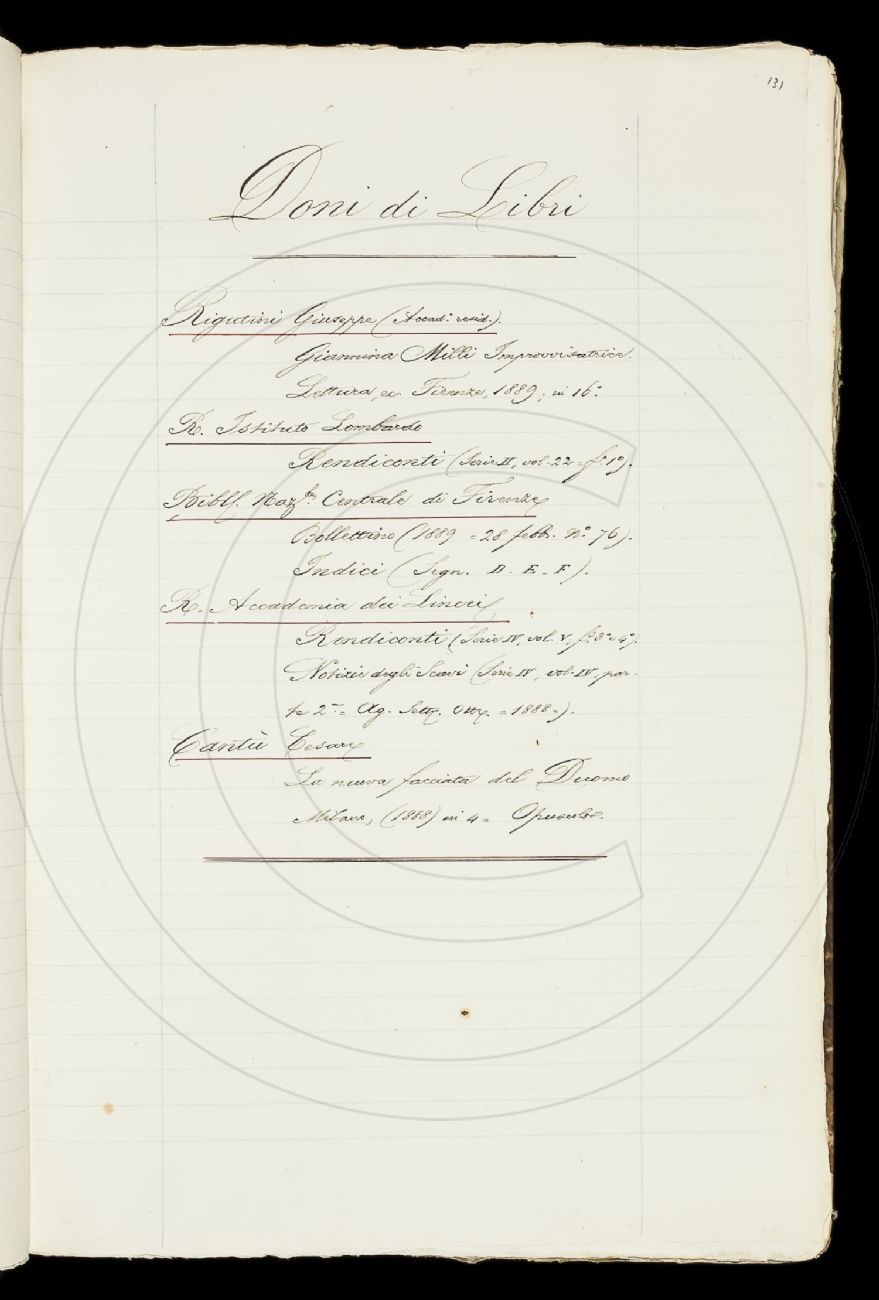 131
Doni di Libri
Rigutini Giuseppe (Accad.º resid.)
Giannina Milli Improvvisatrice.
Lettura, ec. Firenze, 1889, in 16.º
R. Istituto Lombardo
Rendiconti (Serie II, vol. 22 = f.º 1º).
Nazle. Centrale di Firenze
Bollettino (1889 = 28 febb. Nº 76).
Indici (Segn. D. E. F).
R. Accademia dei Lincei
Rendiconti (Serie IV, vol. V, f.º 3º e 4º).
Notizie degli Scavi (Serie IV, vol. IV, par-
te 2ª = Ag. Sett. Ott. = 1888=).
Cantù Cesare
La nuova facciata del Duomo
Milano, (1888) in 4 = Opuscolo.